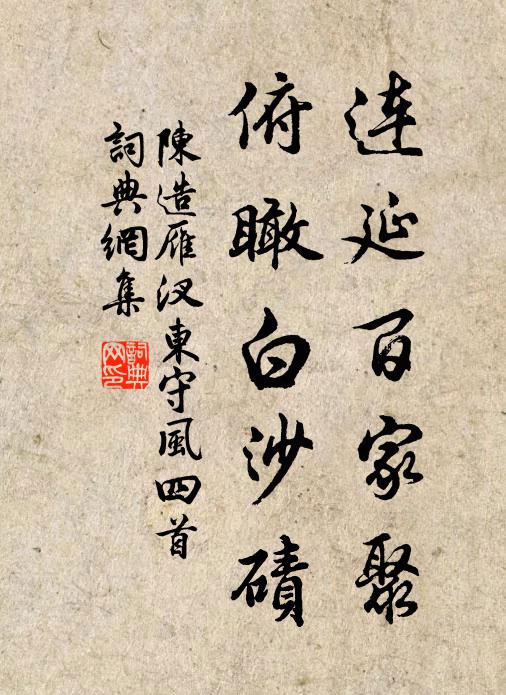 連延百家聚
俯瞰白沙磧
陳造雁汊東守風四首
詞典網集
詞典網印